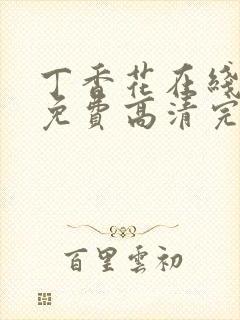 丁香花在綫
免費高清完
百里雲初